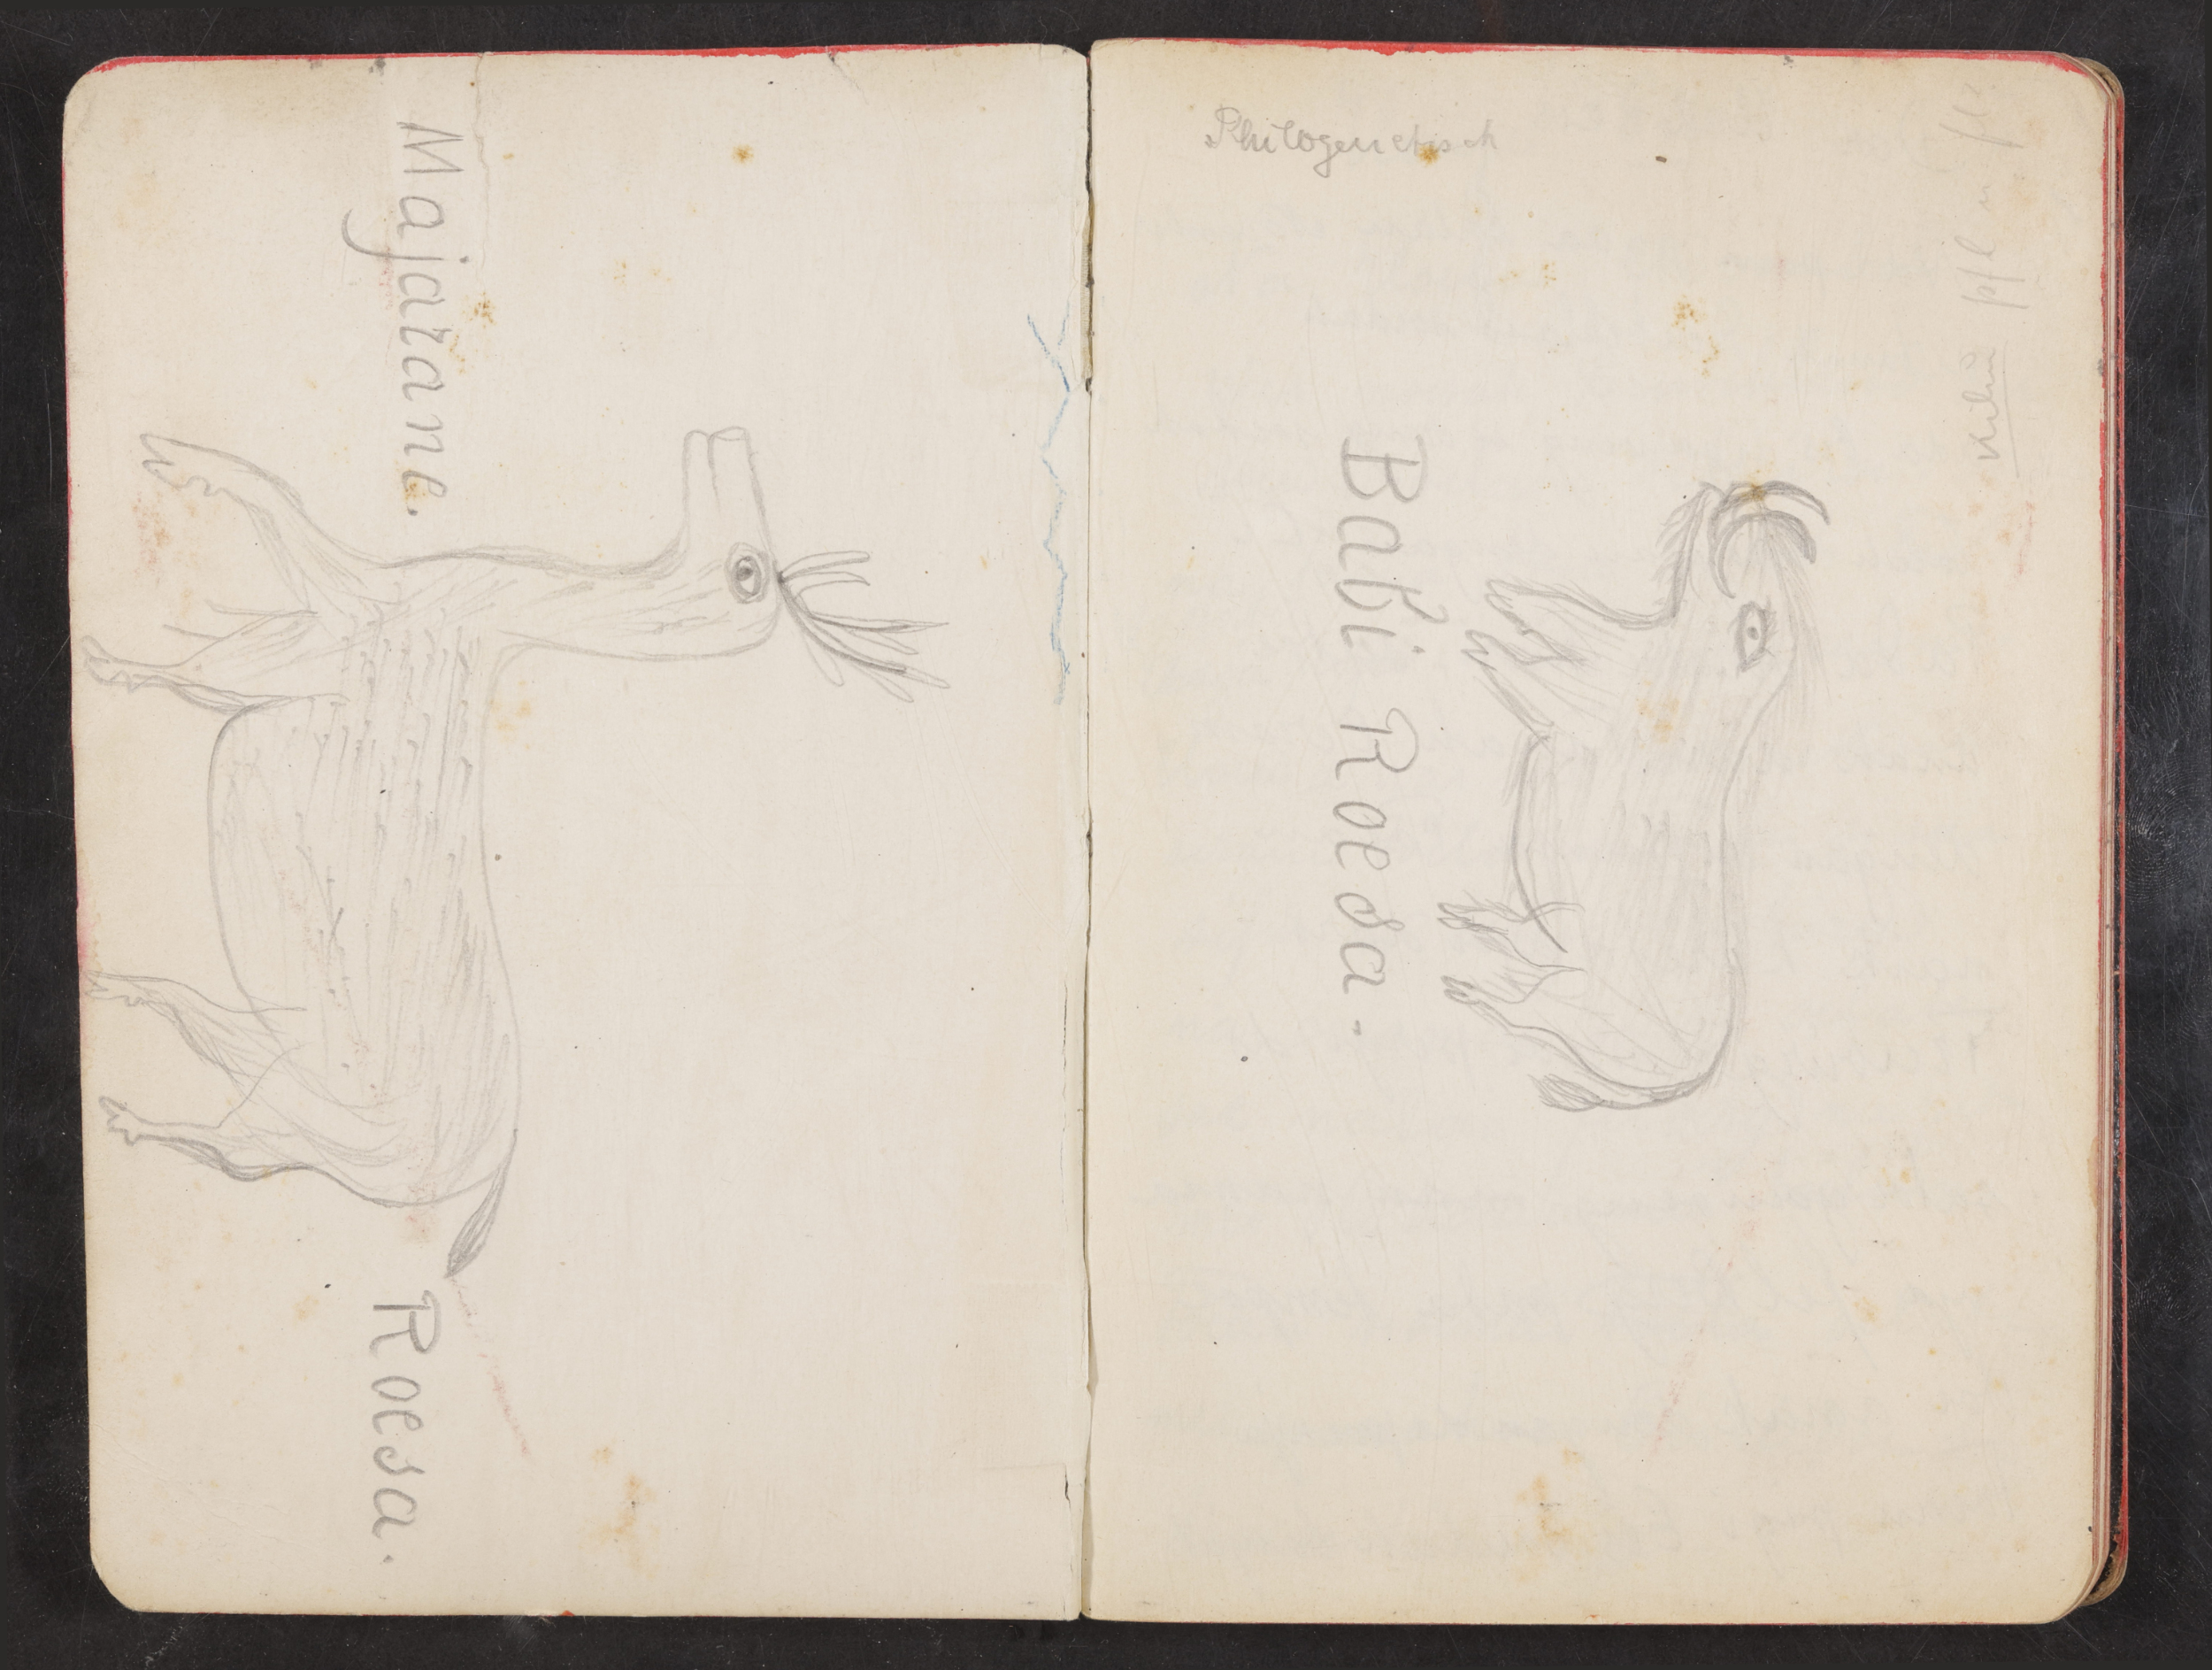 Majarane.
Roesa.
Philogenetisch
Babi Roesa.